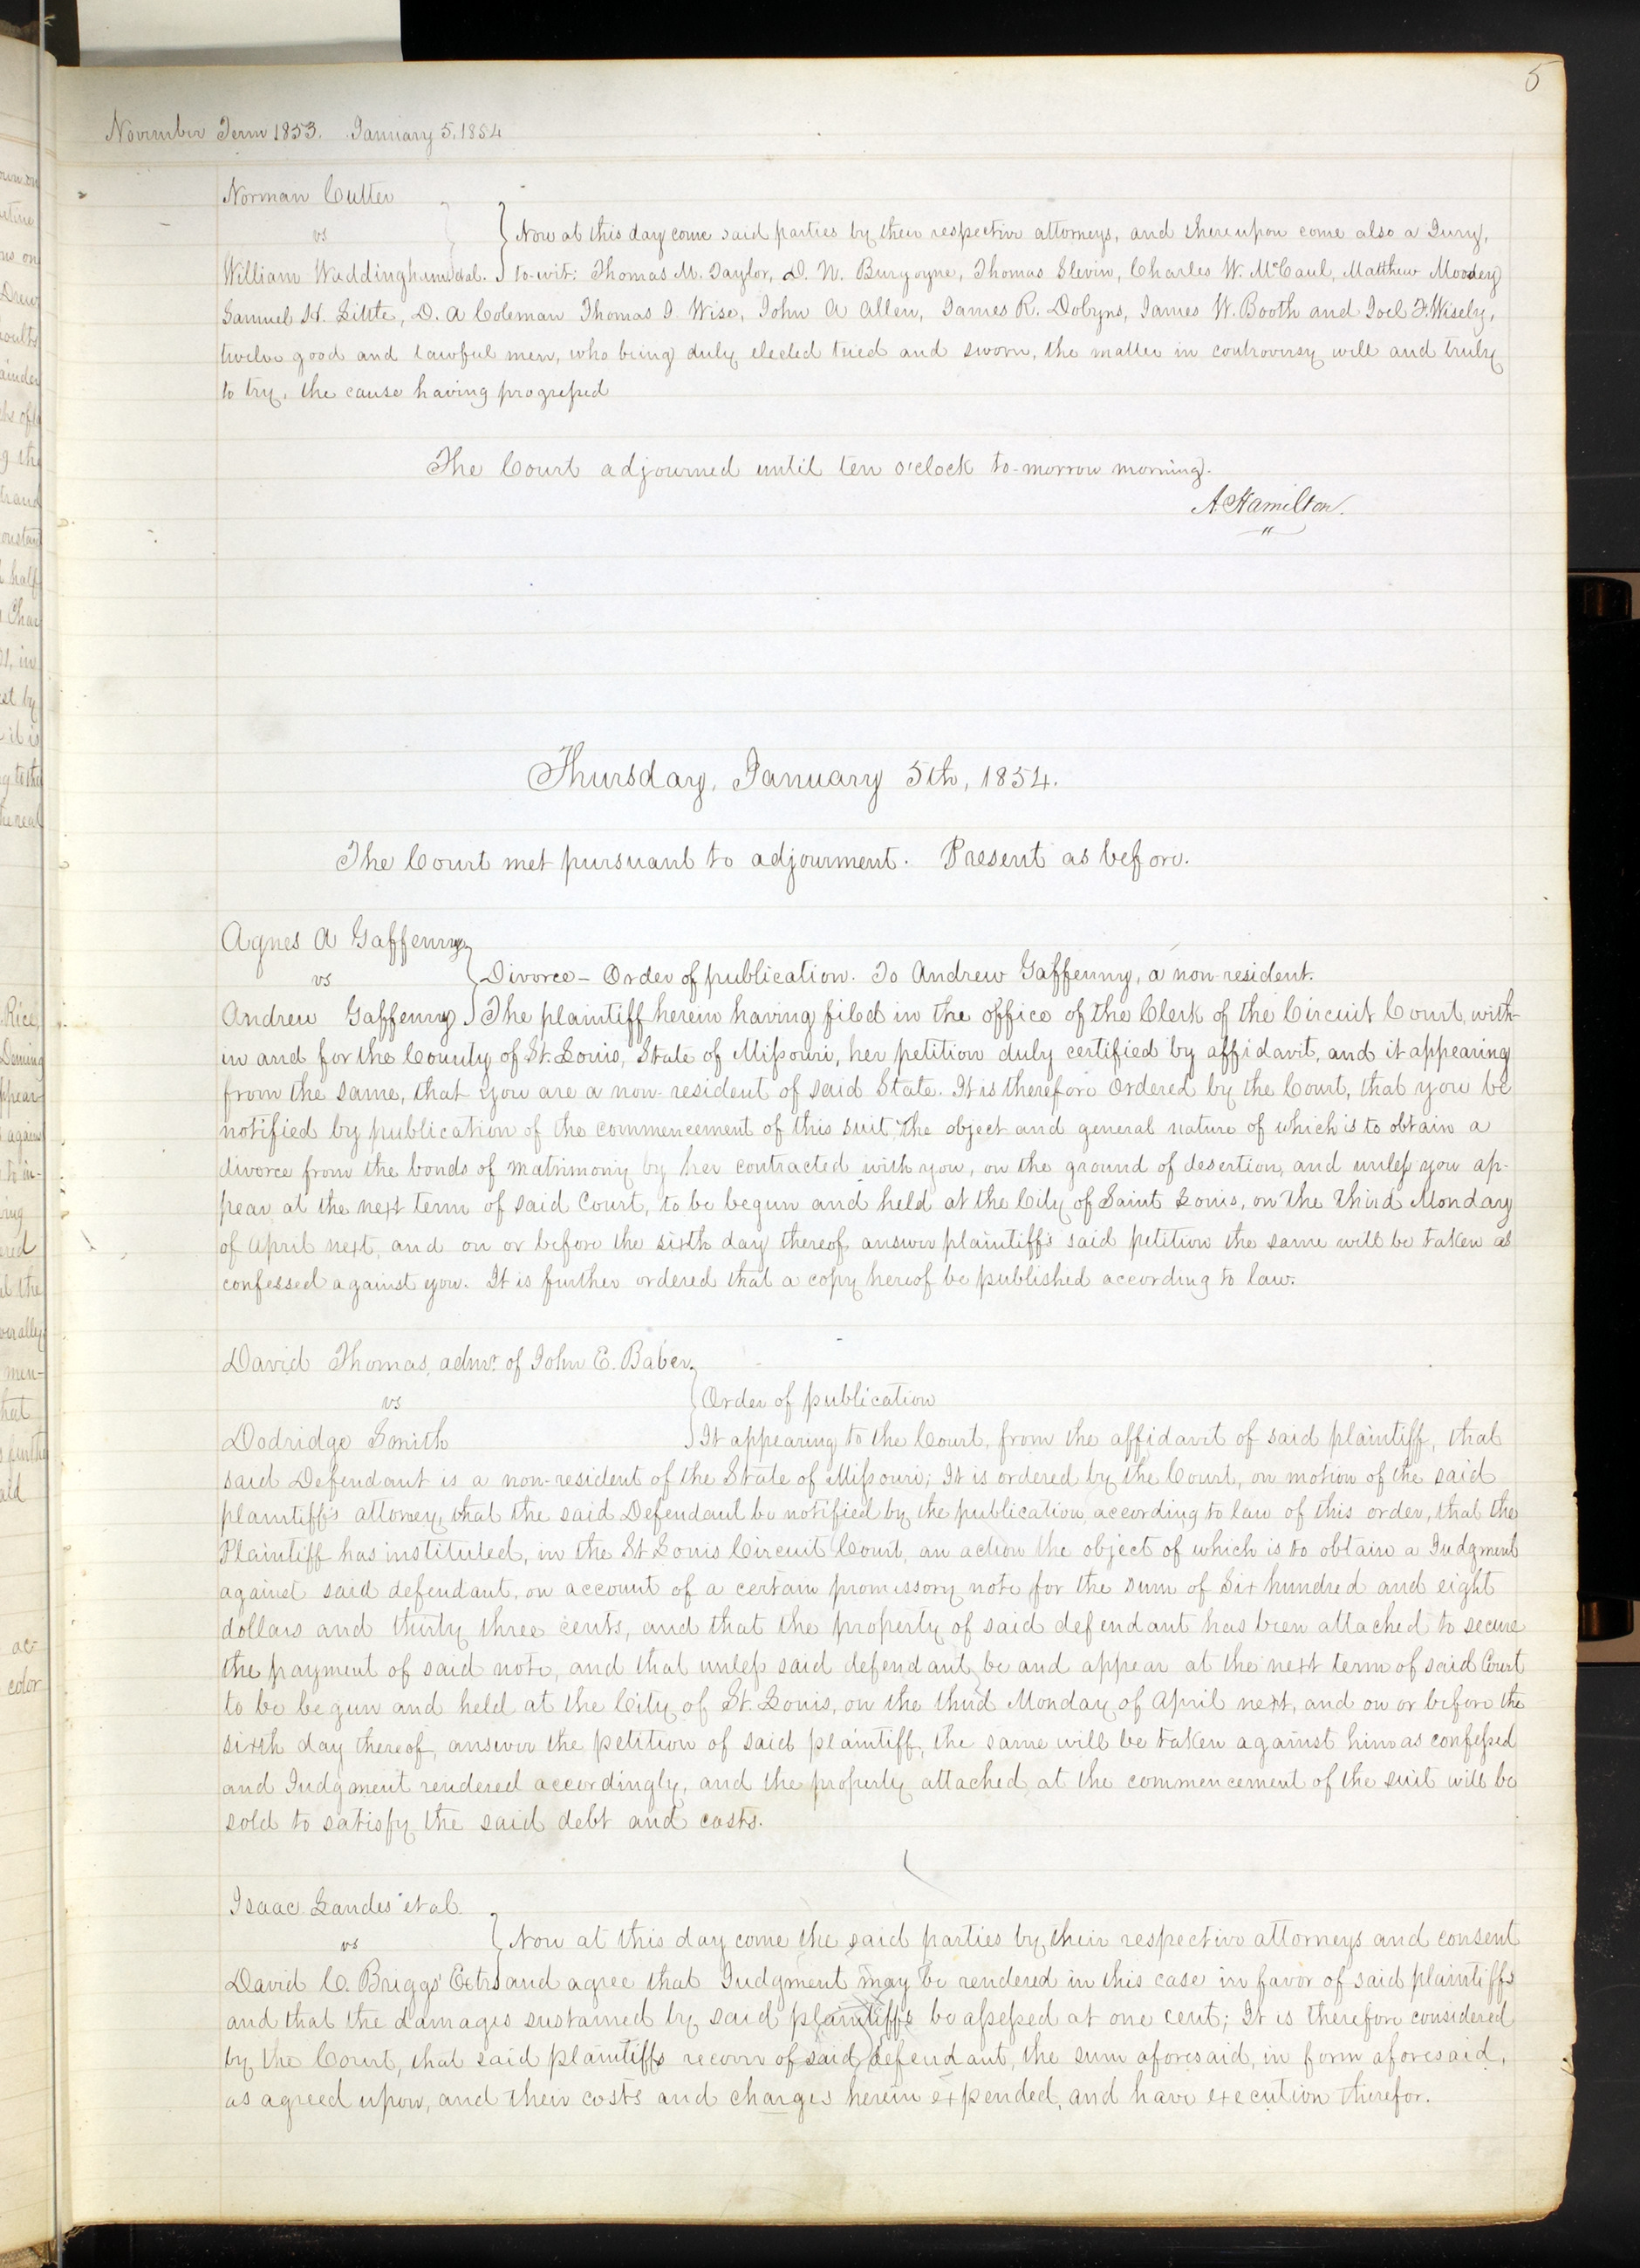 5
November Term 1853. January 5, 1854
Norman Cutter
vs
William Waddingham et al.
Now at this day come said parties by their respective attorneys, and thereupon come also a Jury,
to-wit: Thomas M. Taylor, D. N. Burgoyne, Thomas Slevin, Charles W. McCaul, Matthew Moodey
Samuel H. Little, D. A Coleman Thomas J. Wise, John A Allen, James R. Dobyns, James W. Booth and Joel F. Wisely,
twelve good and lawful men, who being duly elected tried and sworn, the matter in controversy well and truly
to try, the cause having progressed
The Court adjourned until ten o'clock to-morrow morning.
A. Hamilton.
Thursday, January 5th, 1854.
The Court met pursuant to adjourment. Present as before.
Agnes A Gaffenny
vs
Andrew Gaffenny
Divorce - Order of publication. To Andrew Gaffenny, a non-resident.
The plaintiff herein having filed in the office of the Clerk of the Circuit Court, with-
in and for the County of St. Louis, State of Missouri, her petition duly certified by affidavit, and it appearing
from the same, that you are a non-resident of said State. It is therefore Ordered by the Court, that you be
notified by publication of the commencement of this suit, the object and general nature of which is to obtain a
divorce from the bonds of matrimony by her contracted with you, on the ground of desertion, and unless you ap-
pear at the next term of said Court, to be begun and held at the City of Saint Louis, on the third Monday
of April next, and on or before the sixth day thereof, answer plaintiff's said petition the same will be taken as
confessed against you. It is further ordered that a copy hereof be published according to law.
David Thomas, admr. of John E. Baber,
vs
Dodridge Smith
Order of publication
It appearing to the Court, from the affidavit of said plaintiff, that
said Defendant is a non-resident of the State of Missouri; It is ordered by the Court, on motion of the said
plaintiff's attorney, that the said Defendant be notified by the publication, according to law of this order, that the
Plaintiff has instituted, in the St Louis Circuit Court, an action the object of which is to obtain a Judgment
against said defendant, on account of a certain promissory note for the sum of Six hundred and eight
dollars and thirty three cents, and that the property of said defendant has been attached to secure
the payment of said note, and that unless said defendant, be and appear at the next term of said Court
to be begun and held at the City of St. Louis, on the third Monday of April next, and on or before the
sixth day thereof, answer the petition of said plaintiff, the same will be taken against him as confessed
and Judgment rendered accordingly, and the property attached at the commencement of the suit will be
sold to satisfy the said debt and costs.
Isaac Landes et al.
vs
David C. Briggs' Extrs
Now at this day come the said parties by their respective attorneys and consent
and agree that Judgment may be rendered in this case in favor of said plaintiffs
and that the damages sustained by said plaintiffs be assessed at one cent; It is therefore considered
by the Court, that said plaintiffs recover of said defendant, the sum aforesaid, in form aforesaid,
as agreed upon, and their costs and charges herein expended, and have execution therefor.